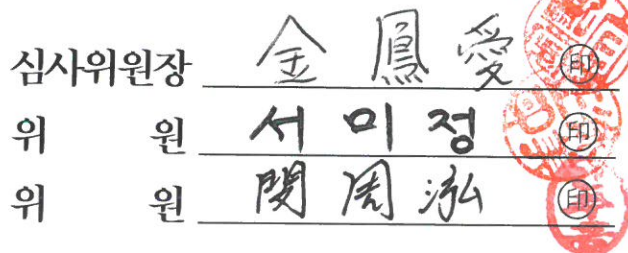 심사위원장 金 鳳 愛 印
위 원 서 미 정 印
위 원 閔 周 泓 印